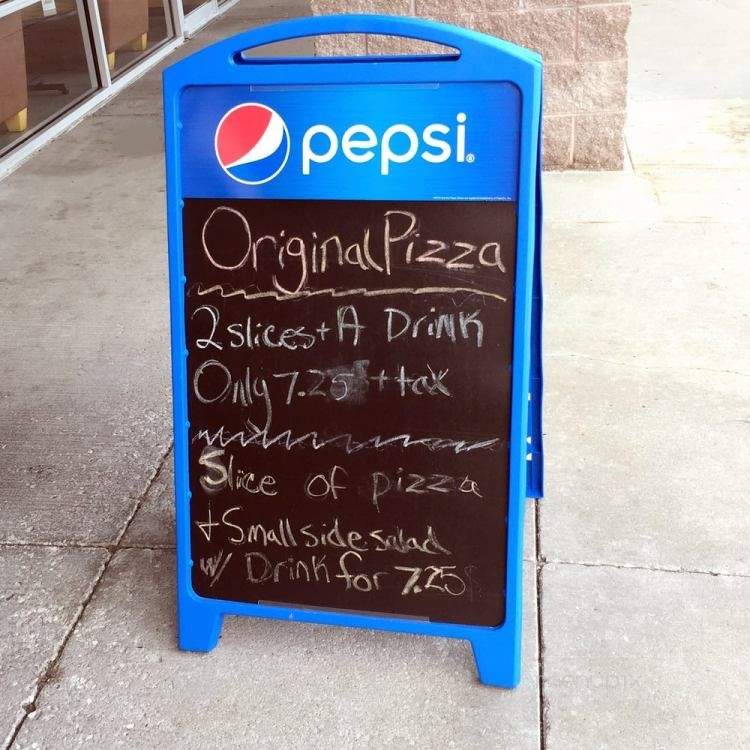 pepsi®
Original Pizza
2 slices + A Drink
Only 7.25 + tax
Slice of pizza
+ Small side salad
w/ Drink for 7.25